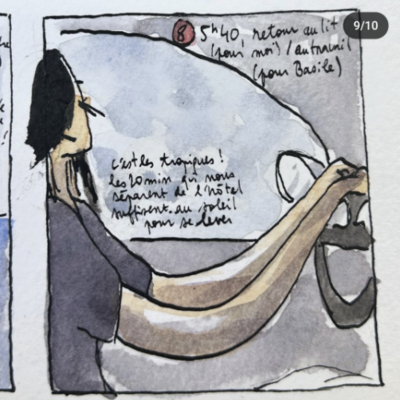 9/10
8 5h40 retour au lit
(pour moi) / au travail
(pour Basile)
c'est les tropiques !
les 20 min qui nous
séparent de l'hôtel
suffisent au soleil
pour se lever